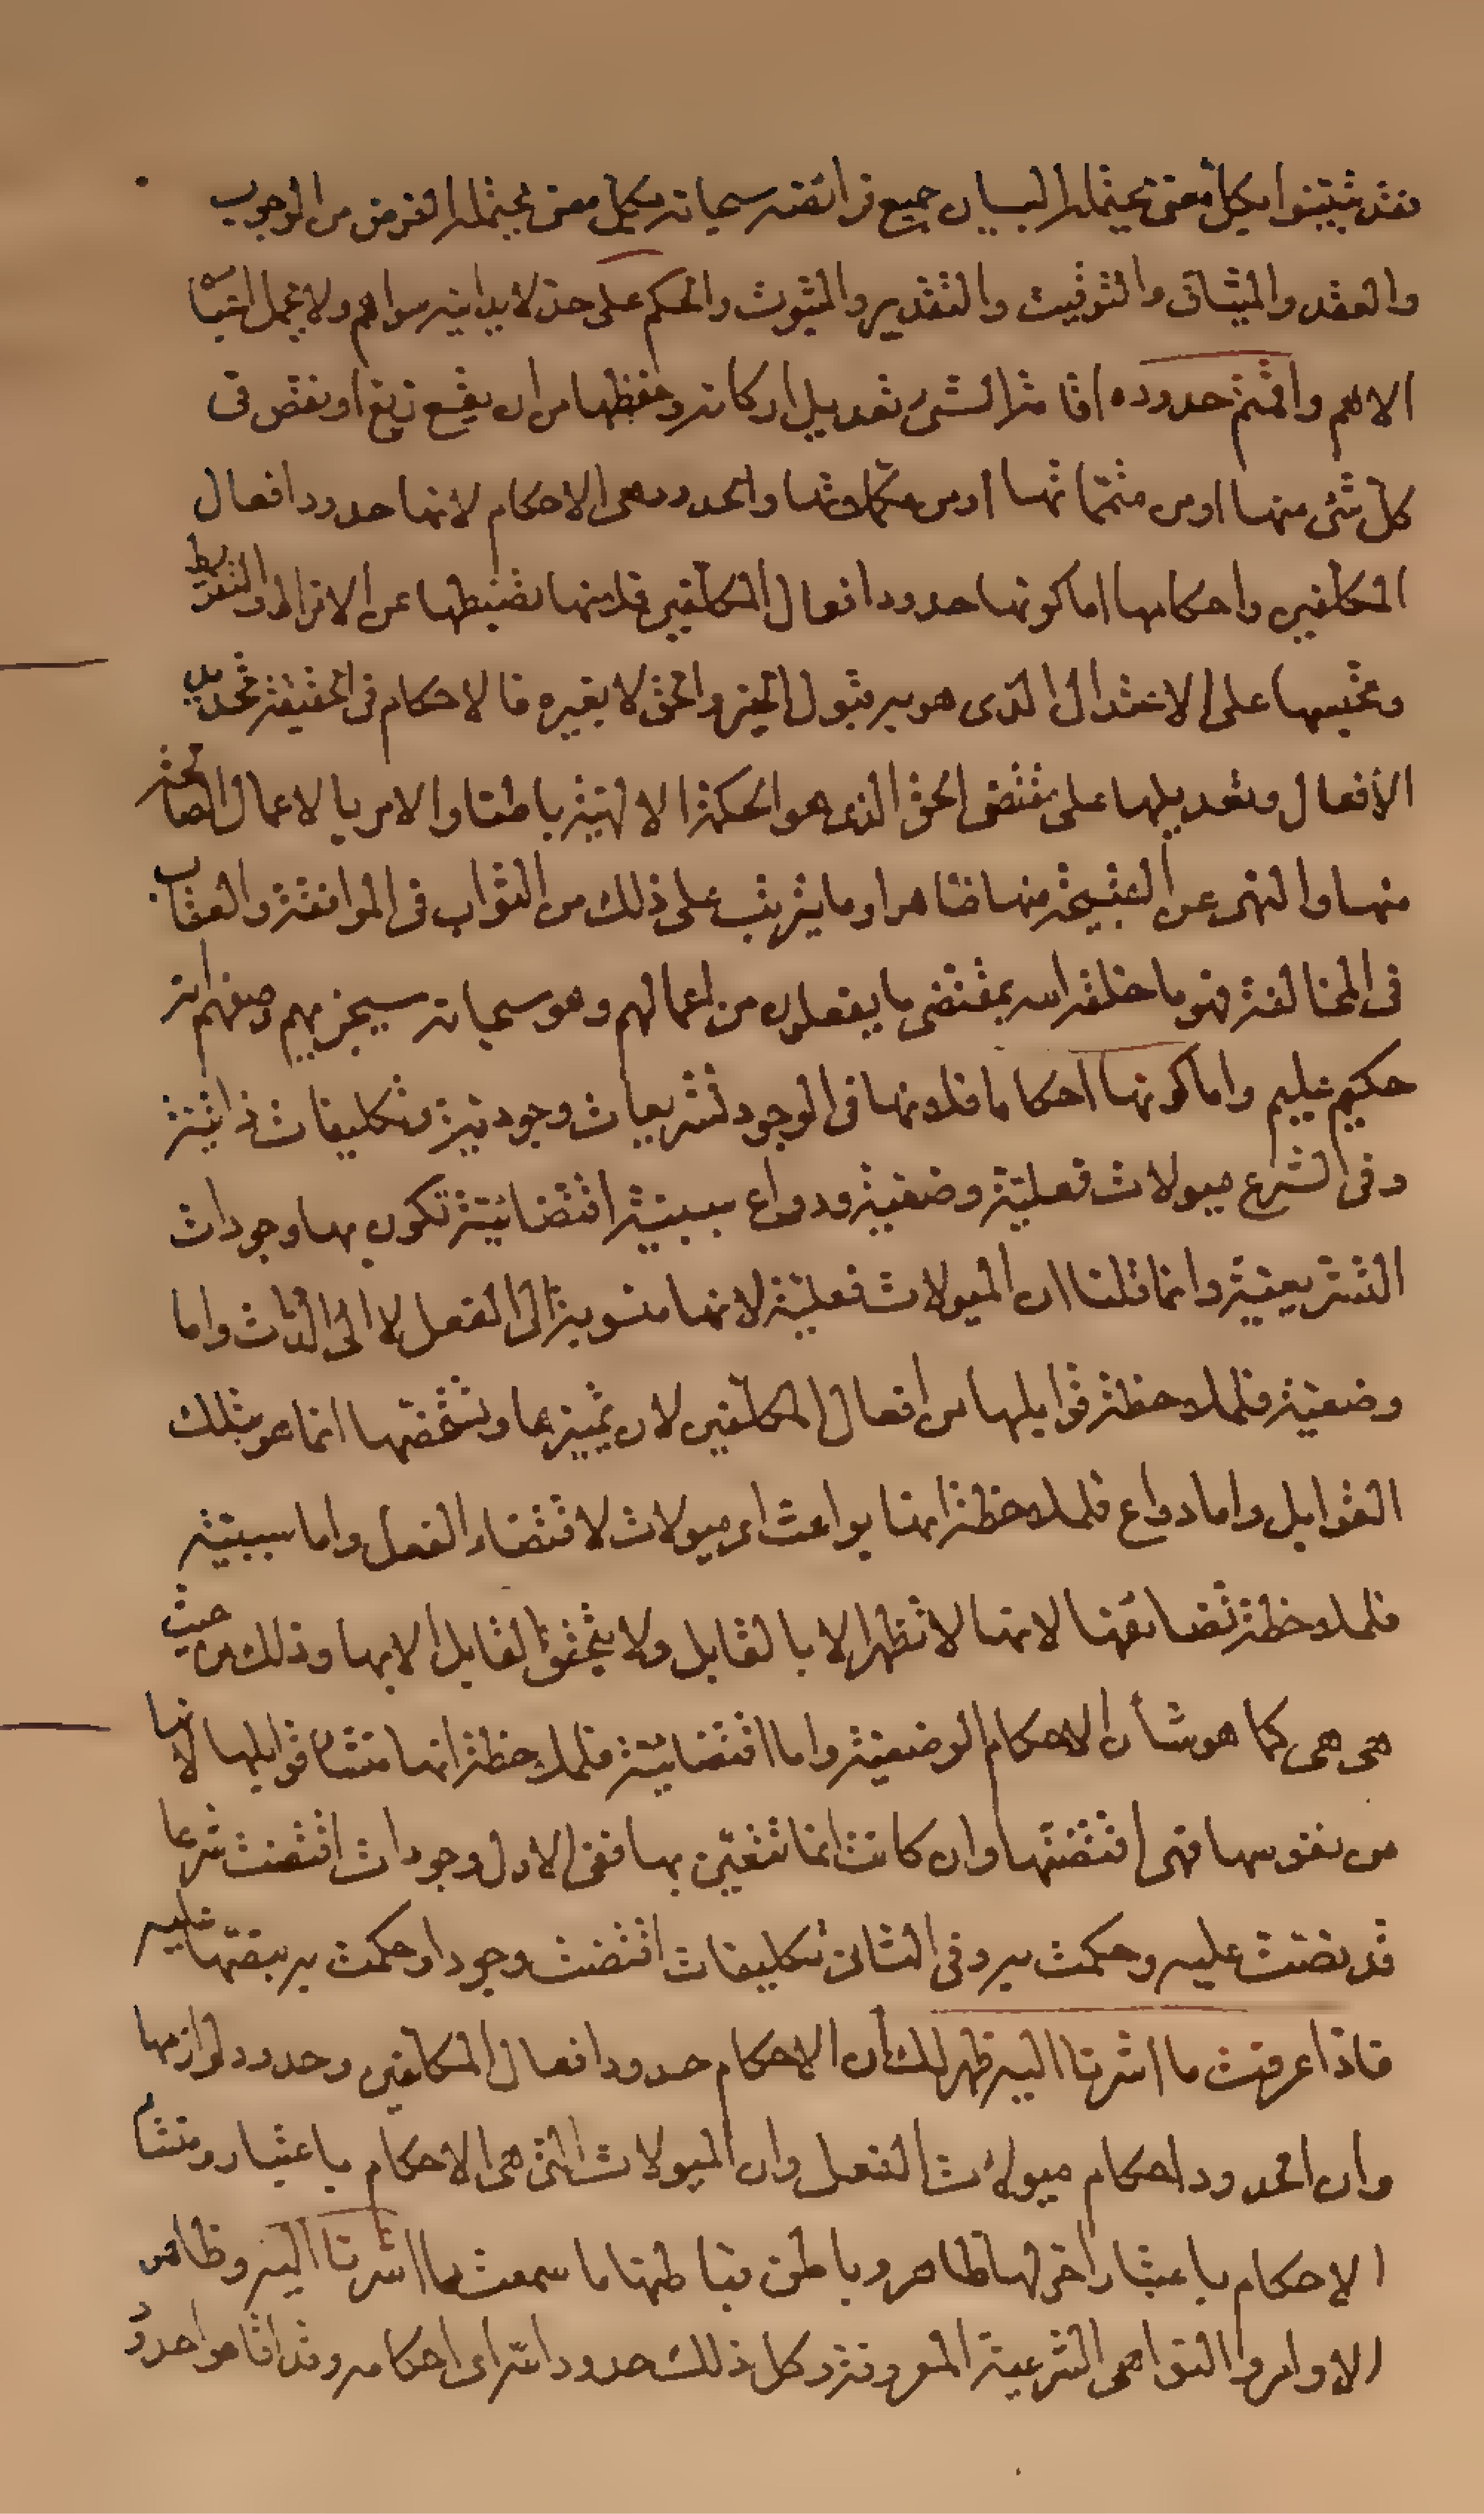 فقد ثبتوا بكل معنى يحتمله البيان جميع فرائضه سبحانه بكل معنى يحتمله الفرض من الوجوب
والعقد والميثاق والتوقيت والتقدير والثبوت والحكم على حد لا يدانيه سواهم ولا يحمل اعباء
الا هم واقمتم حدوده اقامة الشئ تعديل اركانه وحفظها من ان يقع زيغ او نقص فى
كل شئ منها او من متمماتها او من مكملاتها والحدود هى الاحكام لانها حدود افعال
المكلفين واحكامها اما كونها حدود افعال المكلفين فلانها تضبطها عن الافراط والتفريط
وتحبسها على الاعتدال الذى هو به قبول الخير والحق لا بغيره فالاحكام فى الحقيقة تحديد
الأفعال وتعديلها على مقتضى الحق الذى هو الحكمة الالهية باطنا والامر بالاعمال الصالحة
منها والنهى عن القبيحة منها ظاهرا وما يترتب على ذلك من الثواب فى الموافقة والعقاب
فى المخالفة فهو ما خلقه الله بمقتضى ما يفعلون من اعمالهم وهو سبحانه سيجزيهم وصفهم انه
حكيم عليم واما كونها احكاما فلانها فى الوجود تشريعات وجودية وتكليفات ذاتية
وفى الشرع ميولات فعلية وضعية ودواع سببية اقتضائية تكون بها وجودات
التشريعية وانما قلنا ان الميولات فعلية لانها منسوبة الى الفعل لا الى الذات واما
وضعية فلملاحظة قوابلها من افعال المكلفين لان تمييزها وتشخصها انما هو بتلك
القوابل واما دواع فلملاحظة انها بواعث اى ميولات لاقتضاء الفعل واما سببية
فلملاحظة تضائفها لانها لا تظهر الا بالقابل ولا يتحقق القابل الا بها وذلك من حيث
هى هى كما هو شأن الاحكام الوضعية واما اقتضائية فلملاحظة انها منشأ قوابلها لانها
من نفوسها فهى اقتضتها وان كانت انما تتعين بها ففى الاول وجودات اقتضت شرعا
قد نصت عليه وحكمت به وفى الثانى تكليفات اقتضت وجودا وحكمت به بنصها عليه
فاذا عرفت ما اشرنا اليه ظهر لك أن الاحكام حدود افعال المكلفين وحدود لوازمها
وان الحدود احكام ميولات الفعل وان الميولات التى هى الاحكام باعتبار ومنشأ
الاحكام باعتبار اخر لها ظاهر وباطن فباطنها ما سمعت مما اشرنا اليه وظاهر
الاوامر والنواهى الشرعية المعروفة وكل ذلك حدود الله اى احكامه وقد اقاموا حدود